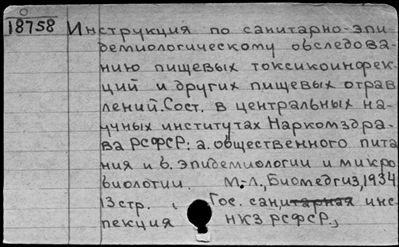 18758 Инструкция по санитарно-эпи
демиологическому обследова-
нию пищевых токсикоинфек-
ций и других пищевых отрав
лений. Сост. в центральных на-
учных институтах Наркомздра-
ва РСФСР: а. общественного пита
ния и в. эпидемиологии и микро
биологии. М.-Л., Биомедгиз, 1934
13стр. , Гос. санитарная инс-
пекция НКЗ РСФСР.,